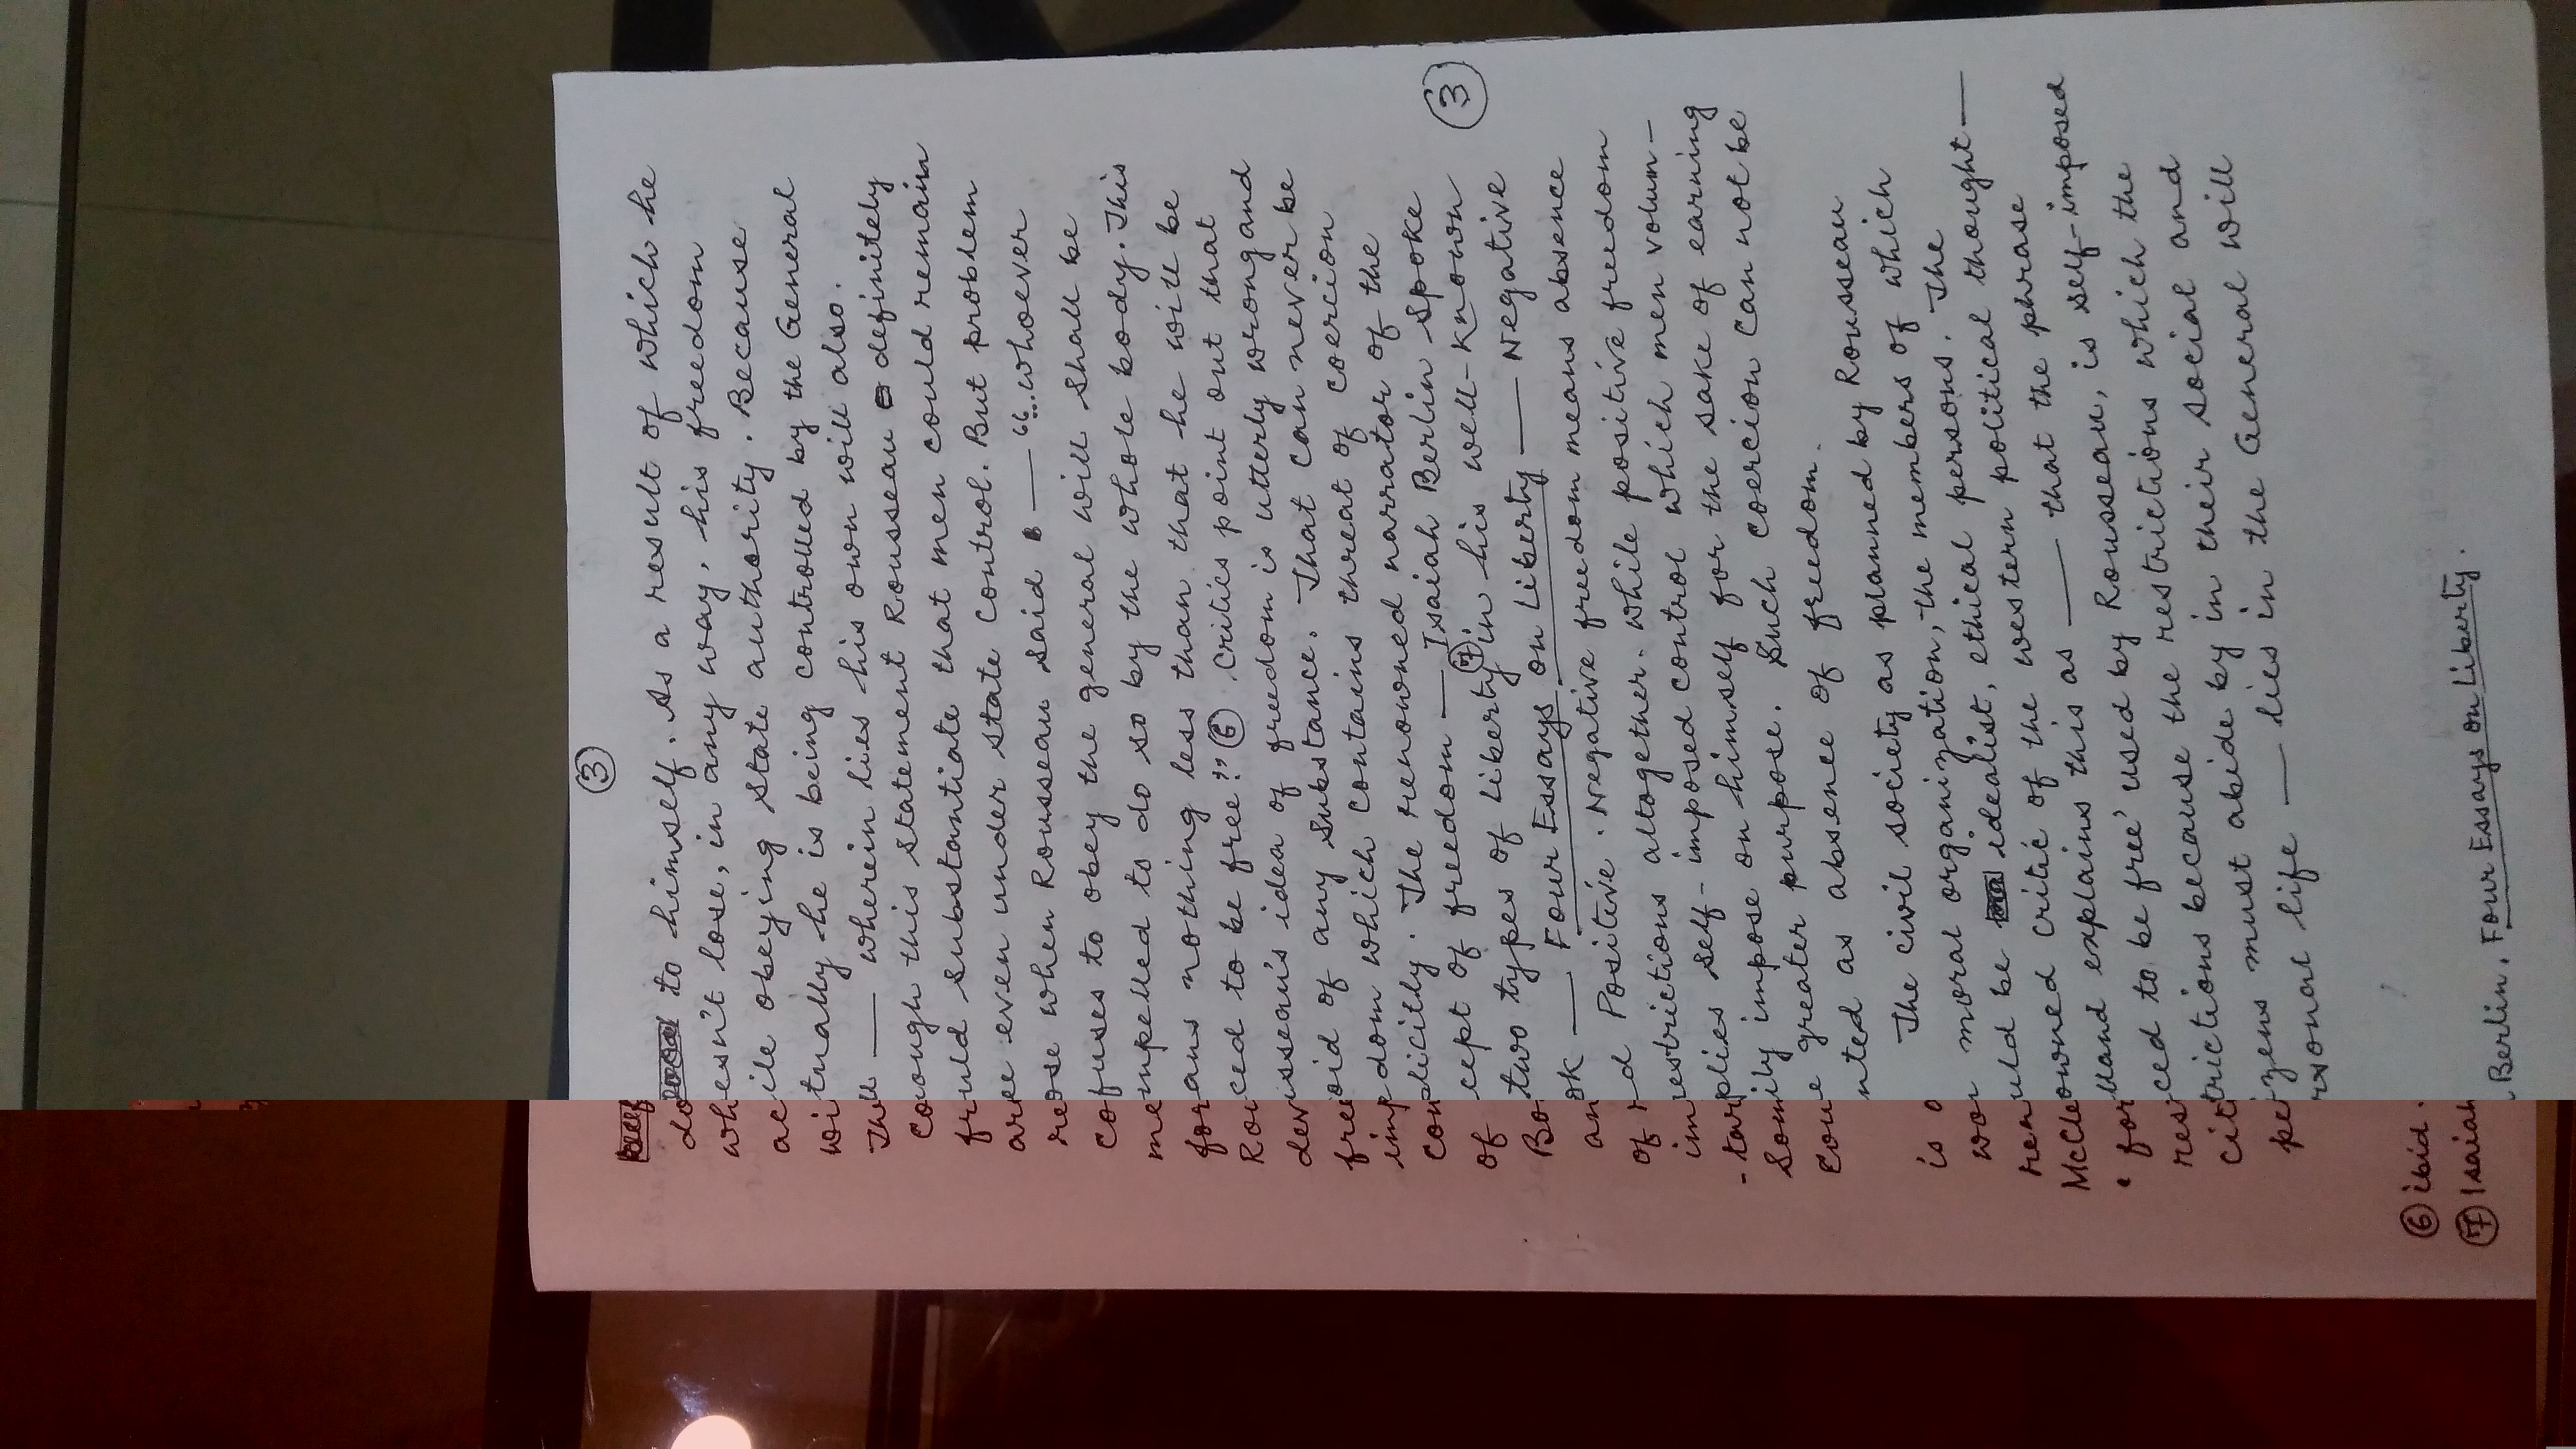 ③
to himself. As a result of which he
doesn't lose, in any way, his freedom
while obeying state authority. Because
actually he is being controlled by the General
will — wherein lies his own will also.
Through this statement Rousseau definitely
could substantiate that men could remain
free even under state control. But problem
arose when Rousseau said — "...whoever
refuses to obey the general will shall be
compelled to do so by the whole body. This
means nothing less than that he will be
forced to be free" ⑥. Critics point out that
Rousseau's idea of freedom is utterly wrong and
devoid of any substance. That can never be
freedom which contains threat of coercion
implicitly. The renowned narrator of the
concept of freedom — Isaiah Berlin spoke
of two types of liberty ⑦ in his well-known ③
Book — Four Essays on Liberty — Negative
and Positive. Negative freedom means absence
of restrictions altogether. while positive freedom
implies self-imposed control which men volun-
-tarily impose on himself for the sake of earning
Some greater purpose. Such coercion can not be
counted as absence of freedom.
The civil society as planned by Rousseau
is a moral organization, the members of which
would be idealist, ethical persons. The
renowned critic of the western political thought —
McClelland explains this as — that the phrase
'forced to be free' used by Rousseau, is self-imposed
restrictions because the restrictions which the
citizens must abide by in their social and
personal life — lies in the General will
⑥ ibid.
⑦ Isaiah Berlin. Four Essays on Liberty.